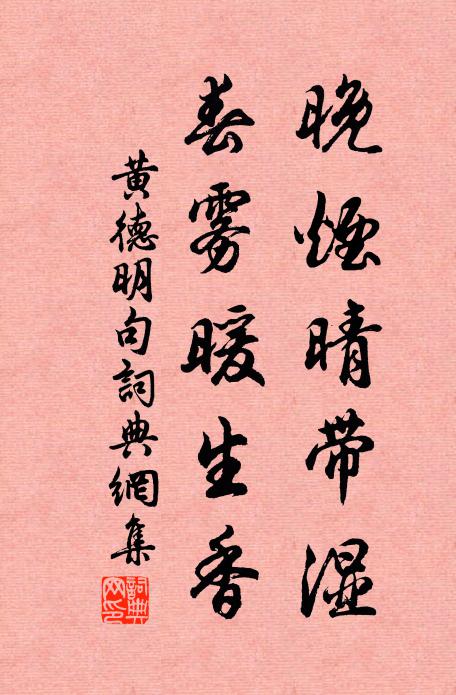 晚煙晴带湿
春雾暖生香
黄德明句詞典網集
詞典网印